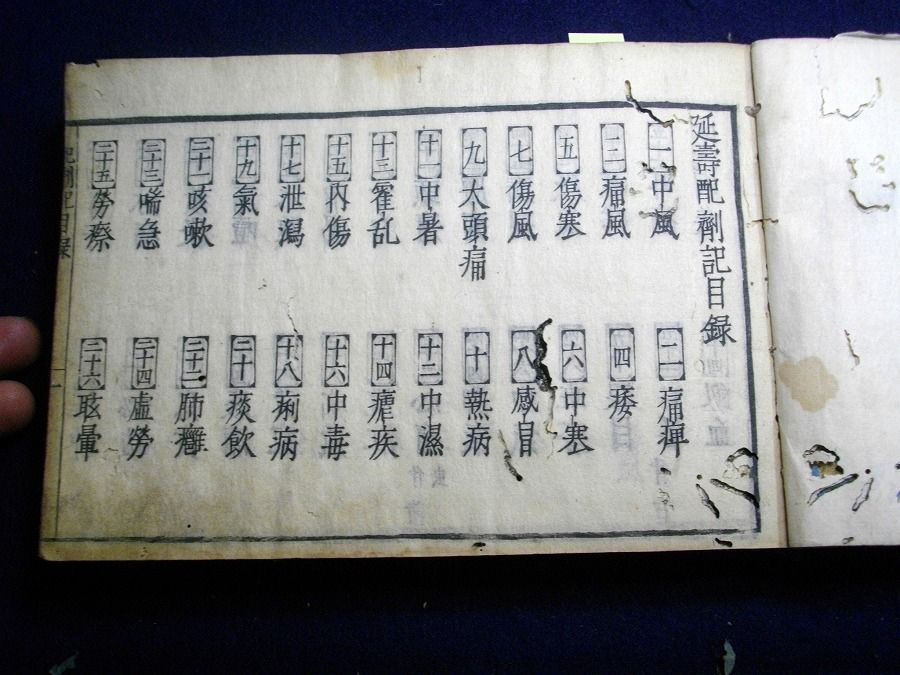 延壽配劑記目録
一 中風 二 痛痺
三 痛風 四 痿
五 傷寒 六 中寒
七 傷風 八 感冒
九 大頭痛 十 熱病
十一 中暑 十二 中濕
十三 霍乱 十四 瘧疾
十五 内傷 十六 中毒
十七 泄瀉 十八 痢病
十九 氣 二十 痰飲
二十一 咳嗽 二十二 肺癰
二十三 喘急 二十四 虚勞
二十五 勞瘵 二十六 眩暈
配劑記目録 一